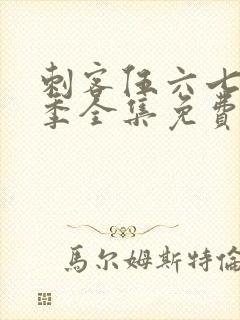 刺客伍六七
季全集免費
馬尔姆斯特倫